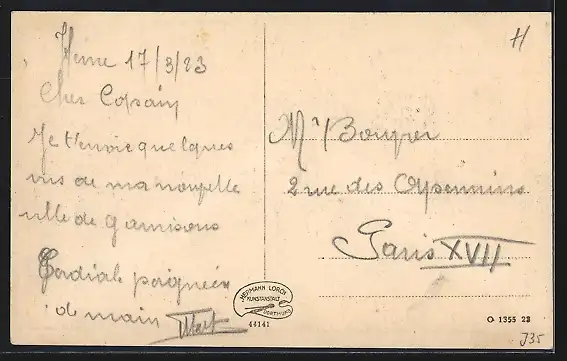 Herne 17/3/23
Cher Copain
Je t'envoie quelques
vues de ma nouvelle
ville de garnisons
Cordiale poignée
de main
H
Mr Bouyer
2 rue des Apennins
Paris XVII
HERMANN LORCH
KUNSTANSTALT
DORTMUND
44141
O 1355 23
J35